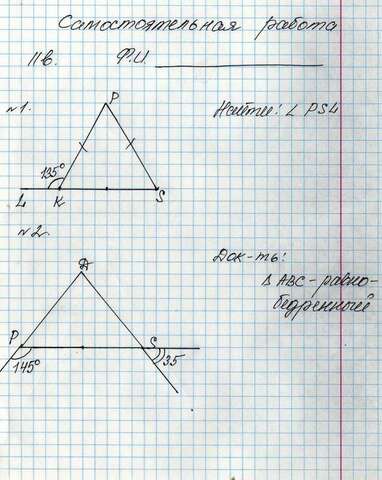 Самостоятельная работа
IIв. Ф.И
№1.
Найти: ∠ PSL
P
135°
L K S
№2.
Док-ть:
Δ ABC - равно-
бедренный
P S
145° 35